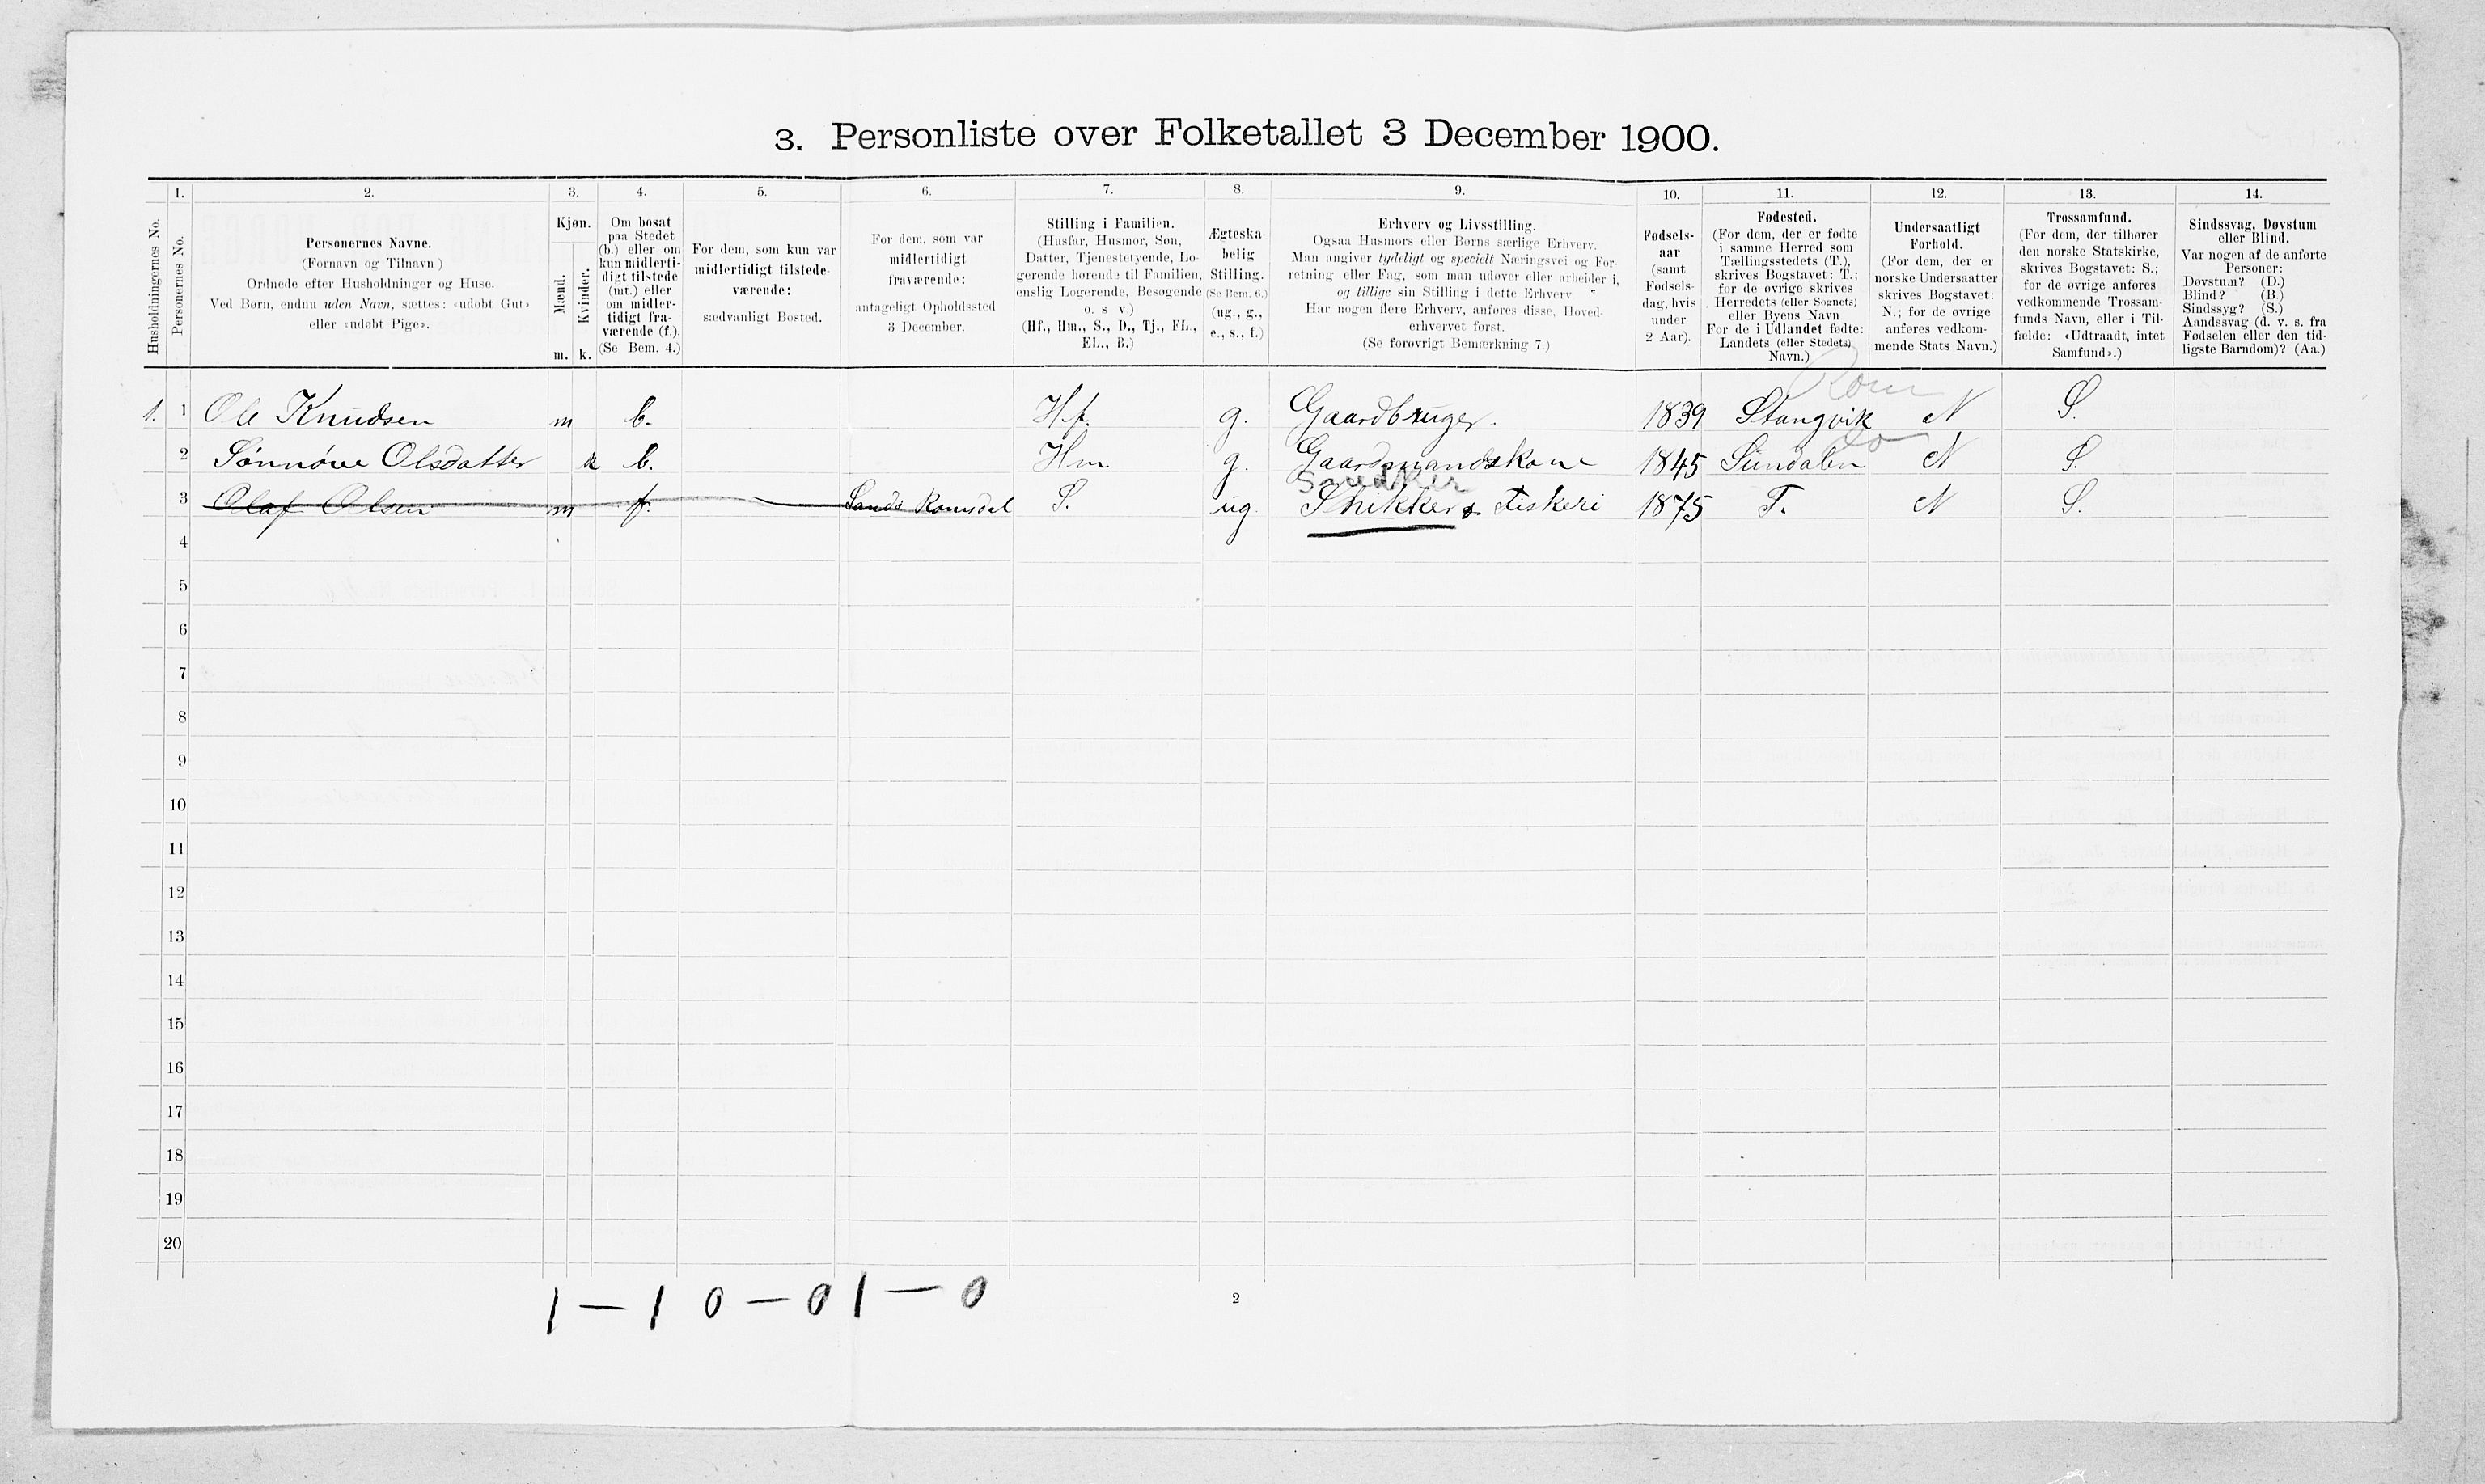 3. Personliste over Folketallet 3 December 1900.
1. 2. 3. 4. 5. 6. 7. 8. 9. 10. 11. 12. 13. 14.
Husholdningernes No.
Personernes No.
Personernes Navne.
(Fornavn og Tilnavn)
Ordnede efter Husholdninger og Huse.
Ved Børn, endnu uden Navn, sættes: «udøbt Gut»
eller «udøbt Pige».
Kjøn.
Mænd.
Kvinder.
m. k.
Om bosat
paa Stedet
(b.) eller om
kun midlerti-
digt tilstede
(mt.) eller
om midler-
tidigt fra-
værende (f.).
(Se Bem. 4.)
For dem, som kun var
midlertidigt tilstede-
værende:
sædvanligt Bosted.
For dem, som var
midlertidigt
fraværende:
antageligt Opholdssted
3 December.
Stilling i Familien.
(Husfar, Husmor, Søn,
Datter, Tjenestetyende, Lo-
gerende hørende til Familien,
enslig Logerende, Besøgende
o. s v)
(Hf., Hm., S., D., Tj., FL.,
EL., B.)
Ægteska-
belig
Stilling.
(Se Bem. 6.)
(ug., g.,
e., s., f.)
Erhverv og Livsstilling.
Ogsaa Husmors eller Børns særlige Erhverv.
Man angiver tydeligt og specielt Næringsvei og For-
retning eller Fag, som man udøver eller arbeider i,
og tillige sin Stilling i dette Erhverv
Har nogen flere Erhverv, anføres disse, Hoved-
erhvervet først.
(Se forøvrigt Bemærkning 7.)
Fødsels-
aar
(samt
Fødsels-
dag, hvis
under
2 Aar).
Fødested.
(For dem, der er fødte
i samme Herred som
Tællingsstedets (T.),
skrives Bogstavet: T.;
for de øvrige skrives
Herredets (eller Sognets)
eller Byens Navn
For de i Udlandet fødte:
Landets (eller Stedets)
Navn.)
Undersaatligt
Forhold.
(For dem, der er
norske Undersaatter
skrives Bogstavet:
N.; for de øvrige
anføres vedkom-
mende Stats Navn.)
Trossamfund.
(For dem, der tilhører
den norske Statskirke,
skrives Bogstavet: S.;
for de øvrige anføres
vedkommende Trossam-
funds Navn, eller i Til-
fælde: «Udtraadt, intet
Samfund».)
Sindssvag, Døvstum
eller Blind.
Var nogen af de anførte
Personer:
Døvstum? (D.)
Blind? (B.)
Sindssyg? (S.)
Aandssvag (d. v. s. fra
Fødselen eller den tid-
ligste Barndom)? (Aa.)
Rom
1. 1 Ole Knudsen m b. Hf. g. Gaardbruger. 1839 Stangvik N S.
do
2 Sønnøve Olsdatter k b. Hm g. Gaardmandskone 1845 Sundalen N S.
Snedker
3 Olaf Olsen m f. Sande Romsdal S. ug Snikker & Fiskeri 1875 T. N S.
4
5
6
7
8
9
10
11
12
13
14
15
16
17
18
19
20
1 — 1 0 — 0 1 — 0
2